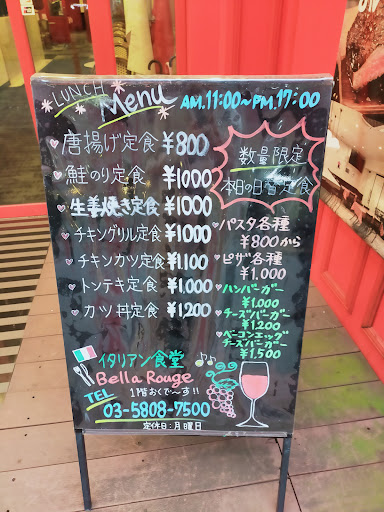 LUNCH
Menu
AM.11:00~PM.17:00
唐揚げ定食 ¥800
鮭のり定食 ¥1000
生姜焼き定食 ¥1000
チキングリル定食 ¥1,000
チキンカツ定食 ¥1,100
トンテキ定食 ¥1,000
カツ丼定食 ¥1,200
数量限定
初の日替定食
パスタ各種
¥800から
ピザ各種
¥1,000
ハンバーガー
¥1,000
チーズバーガー
¥1,200
ベーコンエッグ
チーズバーガー
¥1,500
イタリアン食堂
Bella Rouge
1階おくで〜す!!
TEL
03-5808-7500
定休日:月曜日